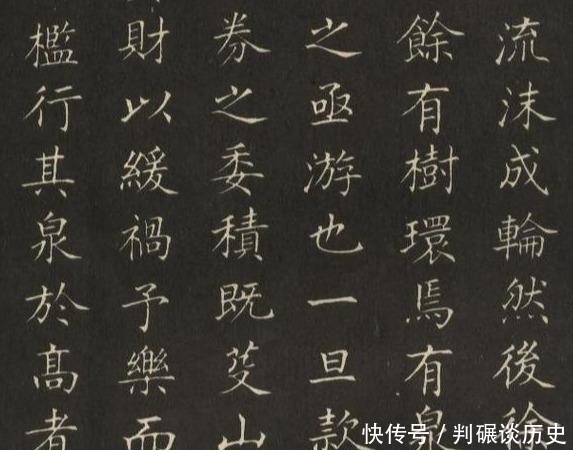 流沫成輪然後徐
餘有樹環焉有泉
之亟游也一旦款
券之委積既芟山
財以緩禍予樂而
檻行其泉於髙者
快传号/判碾谈历史